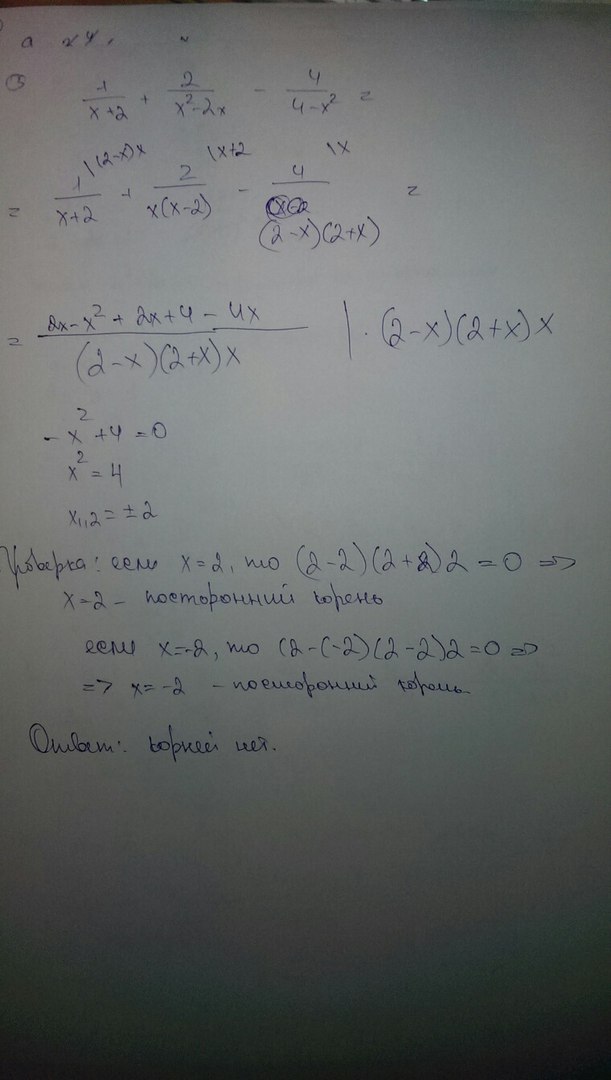 1/(x+2) + 2/(x²-2x) - 4/(4-x²) =
= 1/(x+2) |(2-x)x + 2/(x(x-2)) |x+2 - 4/((2-x)(2+x)) |x =
= (2x-x²+2x+4-4x)/((2-x)(2+x)x) | ·(2-x)(2+x)x
-x²+4=0
x²=4
x₁,₂=±2
Проверка: если x=2, то (2-2)(2+2)2=0 =>
x=2 - посторонний корень
если x=-2, то (2-(-2)(2-2)2=0 =>
=> x=-2 - посторонний корень
Ответ: корней нет.